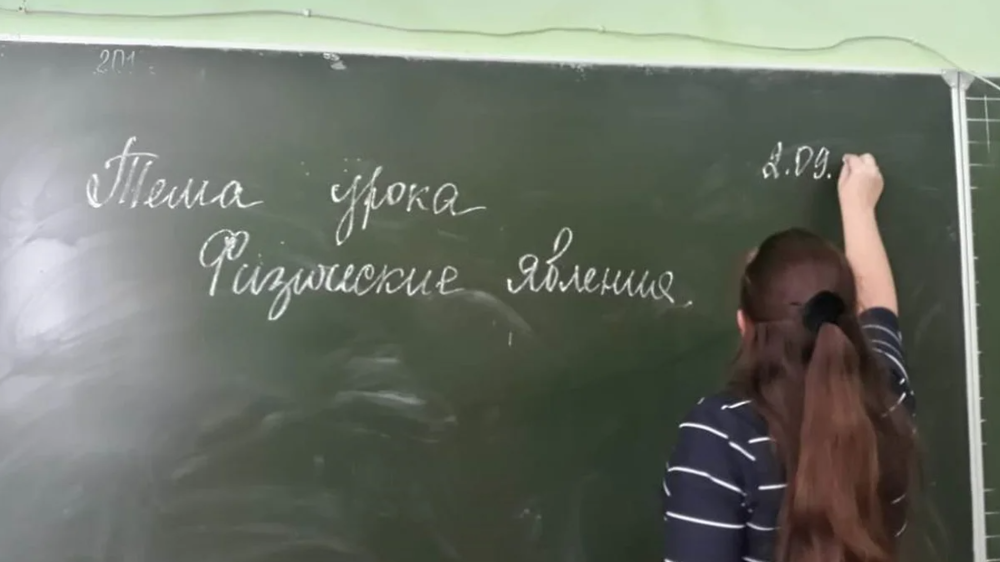 201
2.09.
Тема урока
Физические явления.